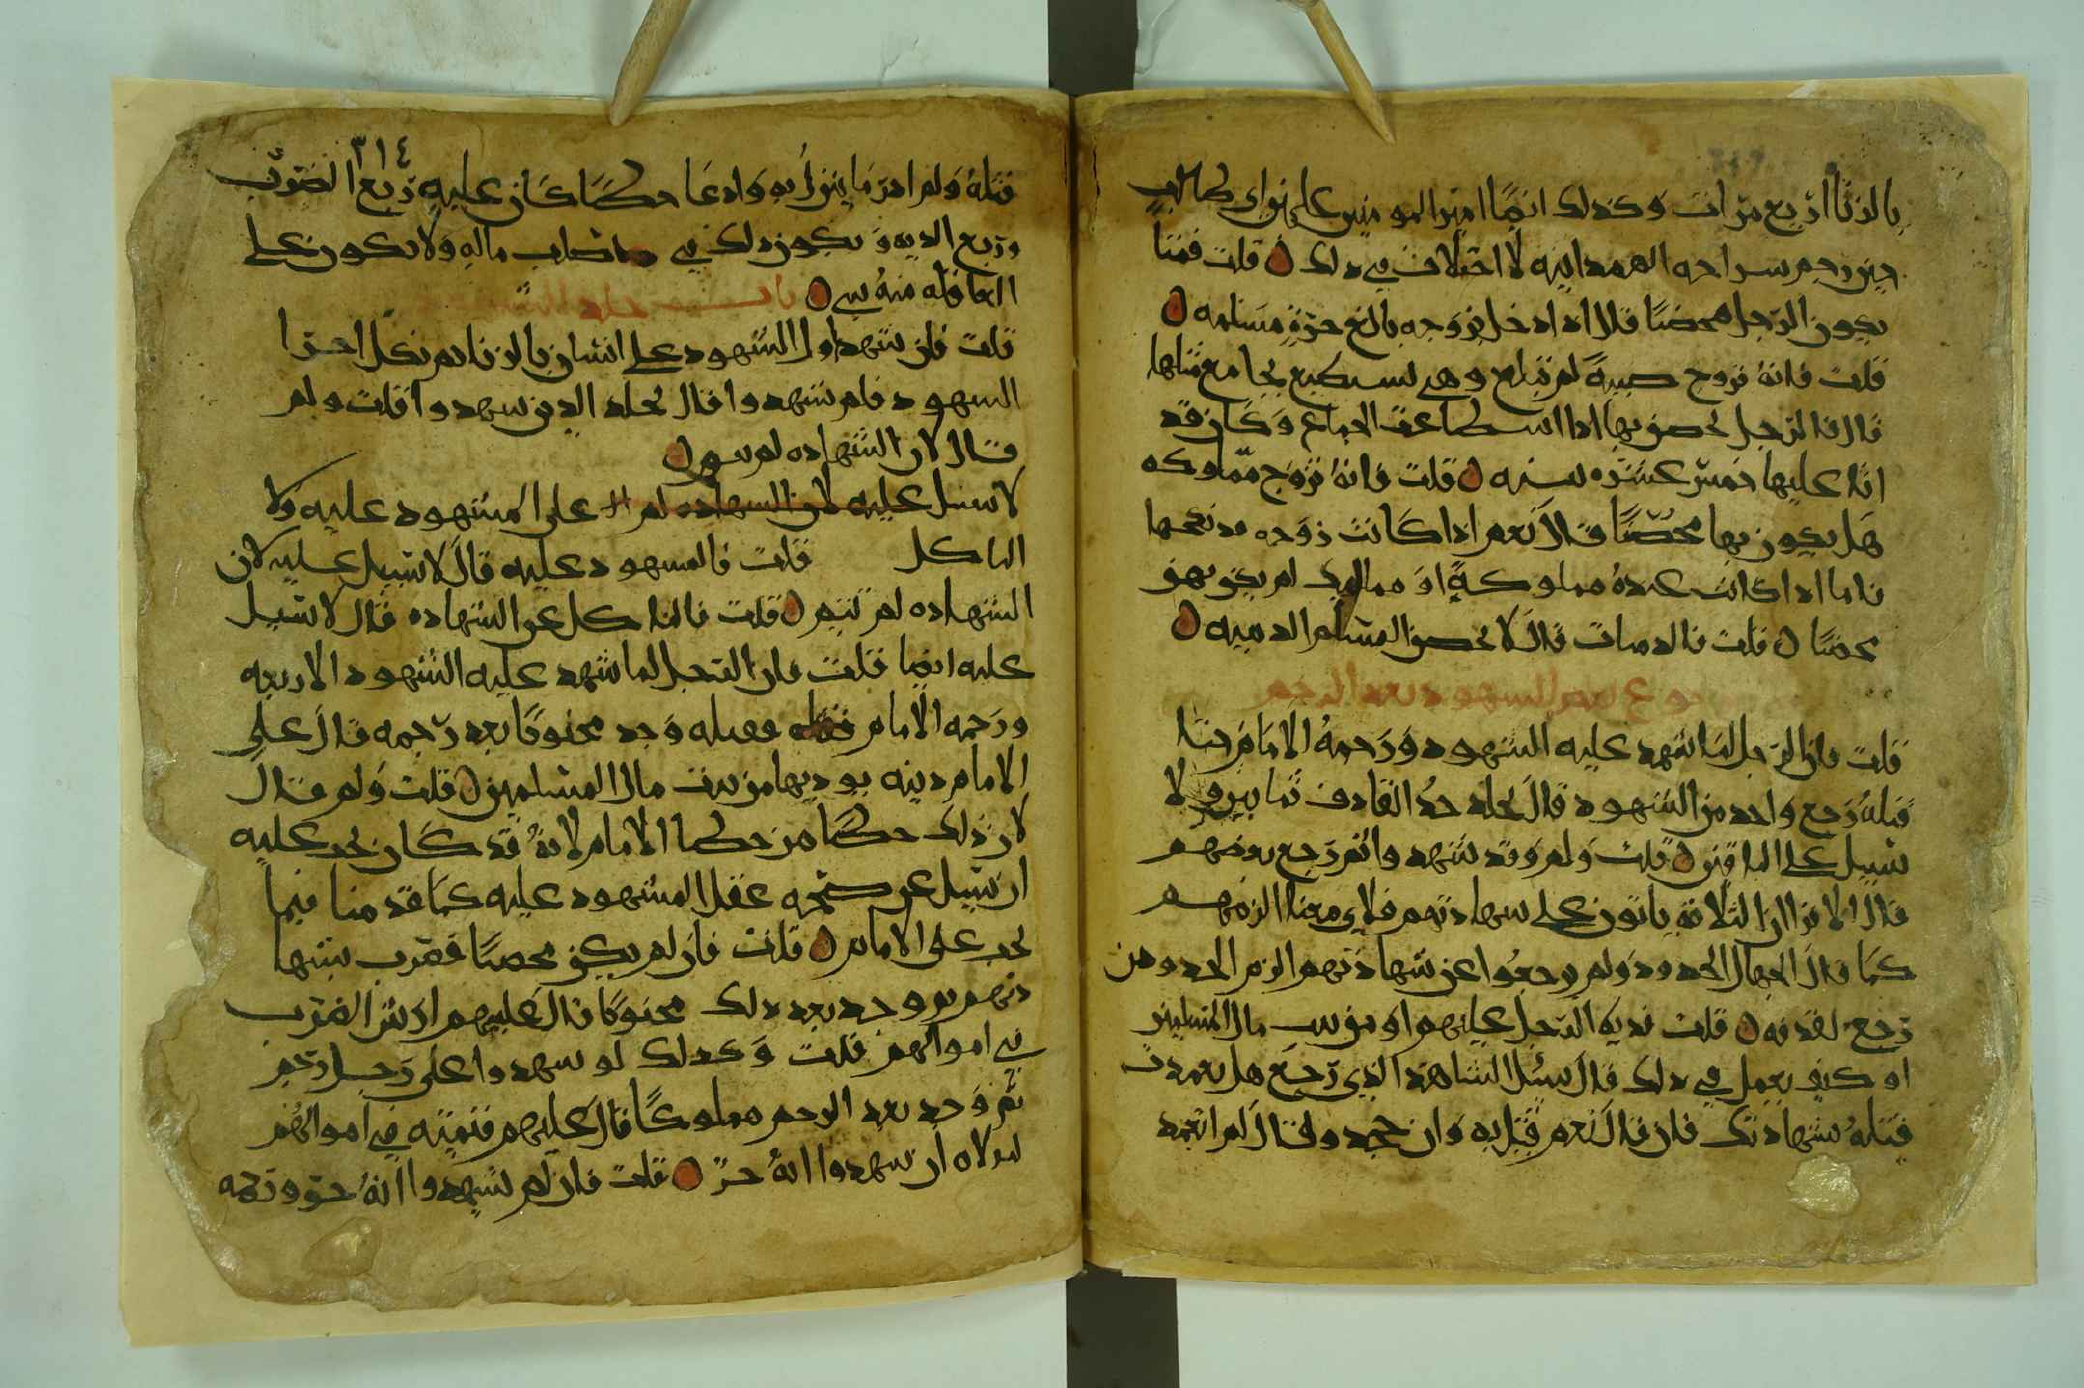 بالزنا اربع مرات وكذلك ايضا امير المومنين علي بن ابي طالب
حين رجم سراحه الهمدانيه لا اختلاف في ذلك قلت فمتا
يكون الرجل محصنا قال اذا دخل بزوجه بالغ حرة مسلمه
قلت فانه تزوج صبية لم تبلغ وهي تستطيع يجامع مثلها
قال فالرجل يحصن بها اذا استطاعت الجماع وكان قد
اتا عليها خمس عشره سنه قلت فانه تزوج مملوكه
هل يكون بها محصنا قال نعم اذا كانت زوجه قد نكحها
فاما اذا كانت عنده مملوكة او مماليك لم يكن بهن
محصنا قلت فالذميات قال لا يحصن المسلم الذميه
رجوع بعض الشهود بعد الرجم
قلت فان الرجل لما شهد عليه الشهود ورجمه الامام حتا
قتله رجع واحد من الشهود قال يجلد حد القاذف ثمانين ولا
سبيل على الباقين قلت ولم وقد شهدوا ثم رجع بعضهم
قال الا ترا ان الثلاثة باتون على شهادتهم فلاي معنا الزمهم
كما قال الجهال الحدود ولم يرجعوا عن شهادتهم الزم الحدود من
رجع لقذفه قلت فدية الرجل عليهم او من بيت مال المسلمين
او كيف يعمل في ذلك قال يسئل الشاهد الذي رجع هل تعمدت
قتله بشهادتك فان قال نعم قتل به وان جحد وقال لم اتعمد
٣١٤
قتله ولم ادر ما ينزل به وادعا حكما كان عليه ربع الضرب
وربع الديه ويكون ذلك في صلب ماله ولا يكون على
العاقله منه شي باب
قلت فان شهد اول الشهود على انسان بالزنا ثم نكل اخر
الشهود فلم يشهدوا قال يجلد الذين شهدوا قلت ولم
قال لان الشهاده لم تتم
لا سبيل عليه لان الشهاده لم على المشهود عليه ولا
الناكل قلت فالمشهود عليه قال لا سبيل عليه لان
الشهاده لم تتم قلت فالناكل عن الشهاده قال لا سبيل
عليه ايضا قلت فان الرجل لما شهد عليه الشهود الاربعه
ورجمه الامام فقتله وجد مجبوبا بعد رجمه قال على
الامام ديته يوديها من بيت مال المسلمين قلت ولم قال
لان ذلك حكما من خطا الامام لانه قد كان يجب عليه
ان يسيل عن صحه عقل المشهود عليه كما قدمنا فيما
يجب على الامام قلت فان لم يكن محصنا فضرب بشها
دتهم ثم وجد بعد ذلك مجبوبا قال عليهم ارش الضرب
في اموالهم قلت وكذلك لو شهدوا على رجل رجم
ثم وجد بعد الرجم مملوكا قال عليهم قيمته في اموالهم
لمولاه ان شهدوا انه حر قلت فان لم يشهدوا انه حر ورجمه